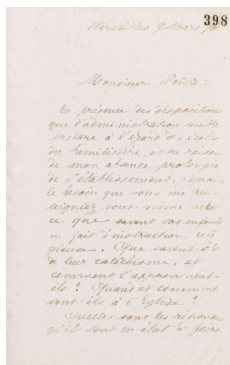 398
Versailles 9 Mars
Monsieur
En présence des dispositions
que l'administration semble
prendre à l'égard des écoles
du Familistère, et en raison
de mon absence prolongée
de l'établissement, j'ai
le besoin que vous me ren-
seigniez vous-même sur
ce que savent nos enfants
en fait d'instruction reli
gieuse. Que savent-ils
de leur catéchisme, et
comment l'apprennent-
ils? Quand et comment
vont-ils à l'Eglise?
Quelles sont les réponses
qu'ils sont en état de faire